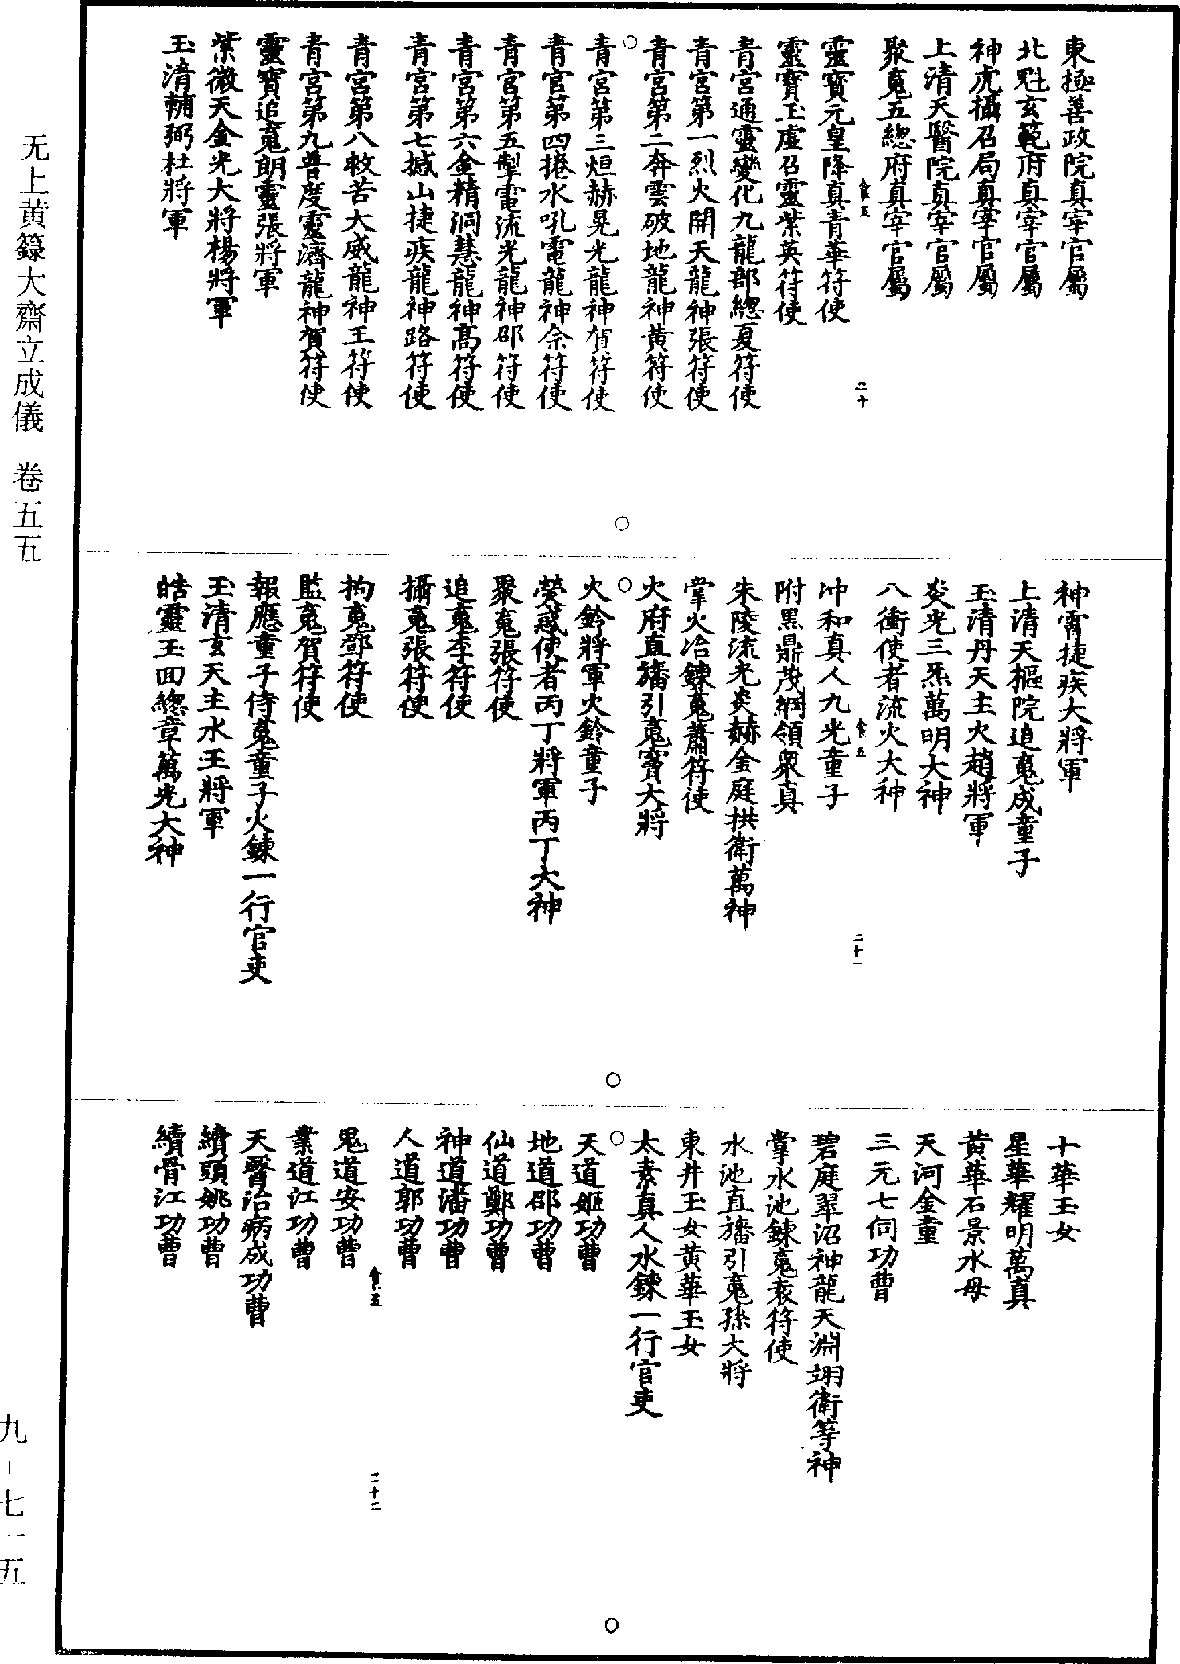 東極善政院真宰官屬
北魁玄範府真宰官屬
神虎攝召局真宰官屬
上清天醫院真宰官屬
聚䰟五總府真宰官屬
食五
二十
靈寶元皇降真青華符使
靈寶玉虛召靈紫英符使
青宮通靈變化九龍部總夏符使
青宮第一烈火開天龍神張符使
青宮第二奔雲破地龍神黄符使
青宮第三烜赫晃光龍神賀符使
青宮第四捲水吼電龍神余符使
青宮第五掣電流光龍神邵符使
青宮第六金精洞慧龍神高符使
青宮第七撼山捷疾龍神路符使
青宮第八救苦大威龍神王符使
青宮第九普度靈濟龍神賀符使
靈寶追䰟朗靈張將軍
紫微天金光大將楊將軍
玉清輔弼杜將軍
神霄捷疾大將軍
上清天樞院追䰟成童子
玉清丹天主火趙將軍
炎光三炁萬明大神
八衝使者流火大神
食五
二十一
冲和真人九光童子
附黑鼎茂綱領衆真
朱陵流光炎赫金庭拱衛萬神
掌火冶鍊䰟蕭符使
火府直旛引䰟竇大將
火鈴將軍火鈴童子
熒惑使者丙丁將軍丙丁大神
聚䰟張符使
追䰟李符使
攝䰟張符使
拘䰟鄧符使
監䰟賀符使
報應童子侍䰟童子火鍊一行官吏
玉清玄天主水王將軍
皓靈玉回總章萬光大神
十華玉女
星華耀明萬真
黄華石景水母
天河金童
三元七伺功曹
碧庭翠沼神龍天淵翊衛等神
掌水池鍊䰟袁符使
水池直旛引䰟孫大將
東井玉女黄華玉女
太素真人水鍊一行官吏
天道姬功曹
地道邵功曹
仙道鄭功曹
神道潘功曹
人道郭功曹
食五
二十二
鬼道安功曹
業道江功曹
天醫治病成功曹
續頭姚功曹
續骨江功曹
无上黄籙大齋立成儀 卷五五
九-七一五